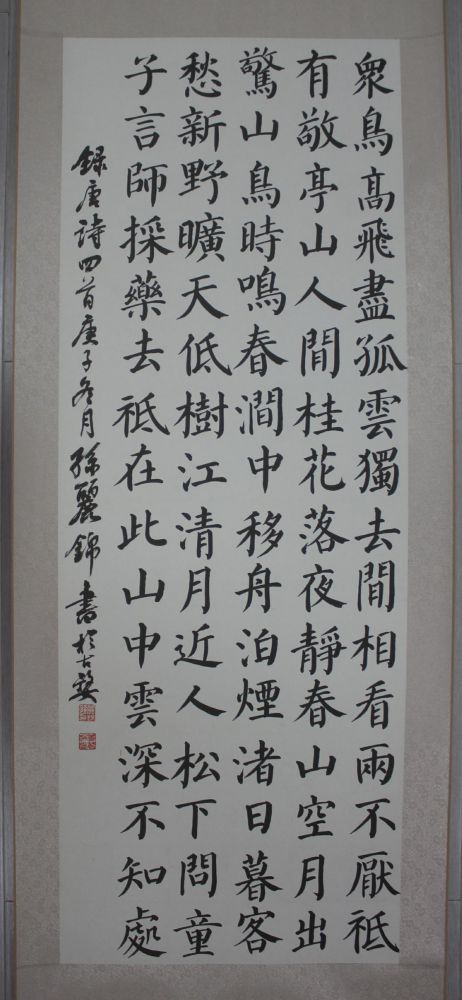 衆鳥髙飛盡孤雲獨去閒相看兩不厭祗
有敬亭山人閒桂花落夜靜春山空月出
驚山鳥時鳴春澗中移舟泊煙渚日暮客
愁新野曠天低樹江清月近人松下問童
子言師採藥去祗在此山中雲深不知處
錄唐詩四首庚子冬月孫麗錦書於古